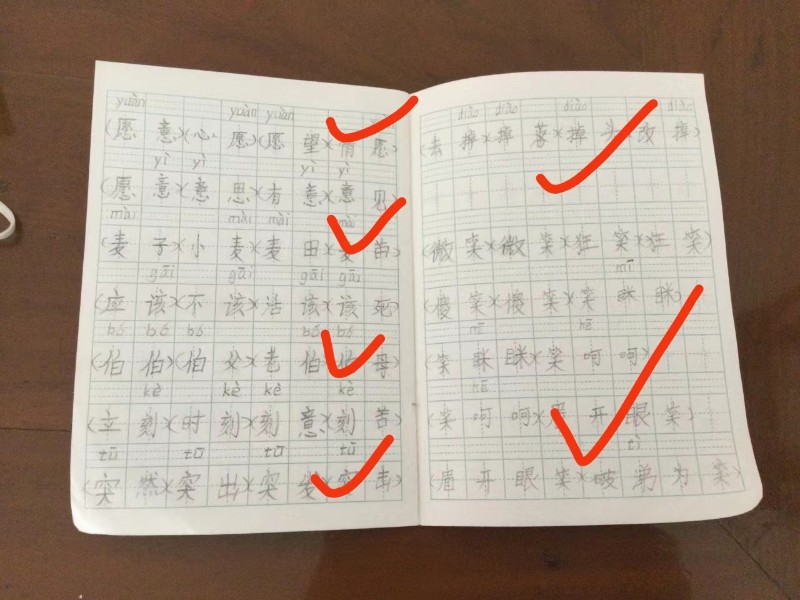 yuàn yuàn yuàn
(愿意)(心愿)(愿望)(情愿)
yì yì yì yì
(愿意)(意思)(有意)(意见)
mài mài mài mài
(麦子)(小麦)(麦田)(麦苗)
gāi gāi gāi gāi
(应该)(不该)(活该)(该死)
bó bó bó bó bó
(伯伯)(伯父)(老伯)(伯母)
kè kè kè kè
(立刻)(时刻)(刻意)(刻苦)
tū tū tū tū
(突然)(突出)(突发)(突击)
diào diào diào diào
(去掉)(掉落)(掉头)(改掉)
(微笑)(微笑)(狂笑)(狂笑)
mī
(傻笑)(傻笑)(笑眯眯)
mī hē
(笑眯眯)(笑呵呵)
hē
(笑呵呵)(眉开眼笑)
tì
(眉开眼笑)(破涕为笑)